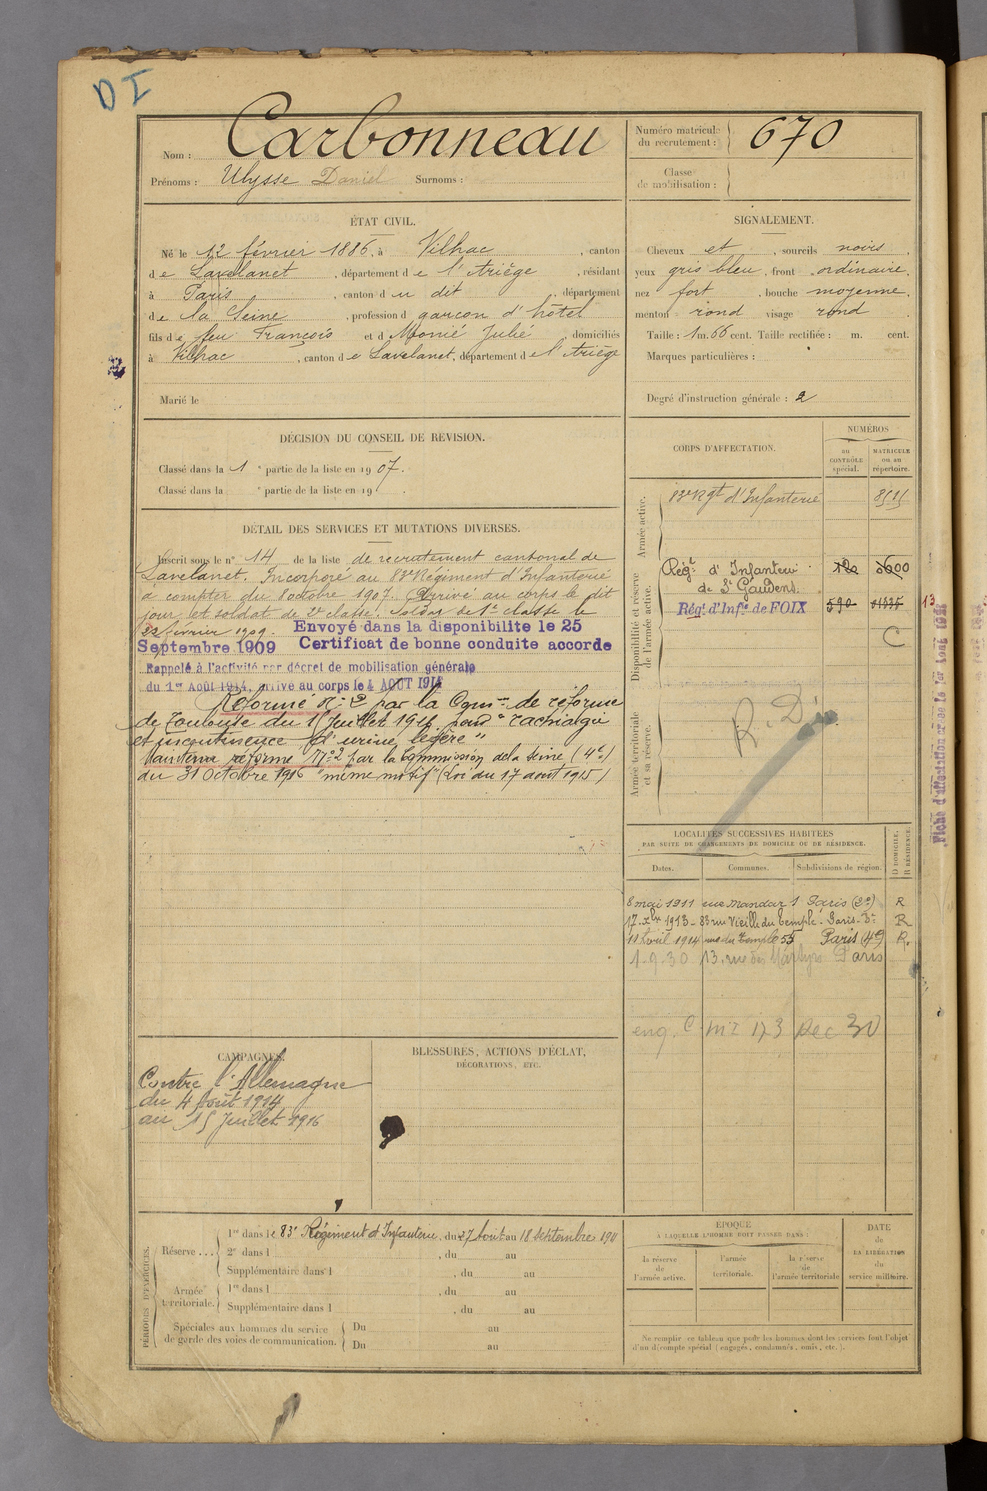 D I
Nom : Carbonneau
Prénoms : Ulysse Daniel Surnoms :
Numéro matricule du recrutement : 670
Classe de mobilisation :
ÉTAT CIVIL.
Né le 12 février 1886, à Vilhac, canton
de Lavelanet, département de l'Ariège, résidant
à Paris, canton du dit, département
de la Seine, profession d garçon d'hôtel
fils de feu François et d Monié Julie, domiciliés
à Vilhac, canton de Lavelanet, département de l'Ariège
Marié le
SIGNALEMENT.
Cheveux et, sourcils noirs,
yeux gris bleu, front ordinaire,
nez fort, bouche moyenne,
menton rond visage rond
Taille : 1 m. 66 cent. Taille rectifiée : m. cent.
Marques particulières :
Degré d'instruction générale : 2
DÉCISION DU CONSEIL DE REVISION.
Classé dans la 1e partie de la liste en 1907.
Classé dans la e partie de la liste en 19 .
DÉTAIL DES SERVICES ET MUTATIONS DIVERSES.
Inscrit sous le n° 14 de la liste de recrutement cantonal de
Lavelanet. Incorporé au 83e Régiment d'Infanterie
à compter du 8 octobre 1907. Arrivé au corps le dit
jour et soldat de 2e classe. Soldat de 1e classe le
22 février 1909. Envoyé dans la disponibilité le 25
Septembre 1909 Certificat de bonne conduite accordé
Rappelé à l'activité par décret de mobilisation générale
du 1er Août 1914, arrivé au corps le 4 AOUT 1914
Réformé n° 2 par la Comon de réforme
de Toulouse du 15 Juillet 1916 pour "rachialgie
et incontinence d'urine légère"
Maintenu réformé N° 2 par la Commission de la Seine (4e)
du 31 Octobre 1916 "même motif" (Loi du 17 août 1915)
CORPS D'AFFECTATION.
NUMÉROS
au CONTRÔLE spécial.
MATRICULE ou au répertoire.
Armée active.
83e Rgt d'Infanterie 8515
Disponibilité et réserve de l'armée active.
Régt d'Infanterie
de St Gaudens.
Régt. d'Infie de FOIX 590
C
Armée territoriale et sa réserve.
R. D.
LOCALITÉS SUCCESSIVES HABITÉES
PAR SUITE DE CHANGEMENTS DE DOMICILE OU DE RÉSIDENCE.
Dates. Communes. Subdivisions de région.
D DOMICILE. R RÉSIDENCE.
8 mai 1911 rue Mandar 1 Paris (2e) R
17 Xbre 1913 - 83 rue Vieille du Temple - Paris - 3e R
11 Avril 1914 rue du Temple 55 Paris (4e) R.
1.9.30 13, rue des Martyrs Paris
eng. C mI 173 Dec 30
Fiche d'affectation
CAMPAGNES.
Contre l'Allemagne
du 4 Août 1914
au 15 Juillet 1916
BLESSURES, ACTIONS D'ÉCLAT,
DÉCORATIONS, ETC.
PÉRIODES D'EXERCICES.
Réserve ... 1re dans le 83e Régiment d'Infanterie, du 27 Août au 18 Septembre 191
2e dans l , du au
Supplémentaire dans l , du au
Armée territoriale. 1re dans l , du au
Supplémentaire dans l , du au
Spéciales aux hommes du service de garde des voies de communication. Du au
Du au
ÉPOQUE
À LAQUELLE L'HOMME DOIT PASSER DANS :
la réserve de l'armée active.
l'armée territoriale.
la réserve de l'armée territoriale
DATE de LA LIBÉRATION du service militaire.
Ne remplir ce tableau que pour les hommes dont les services font l'objet
d'un décompte spécial (engagés, condamnés, omis, etc.).